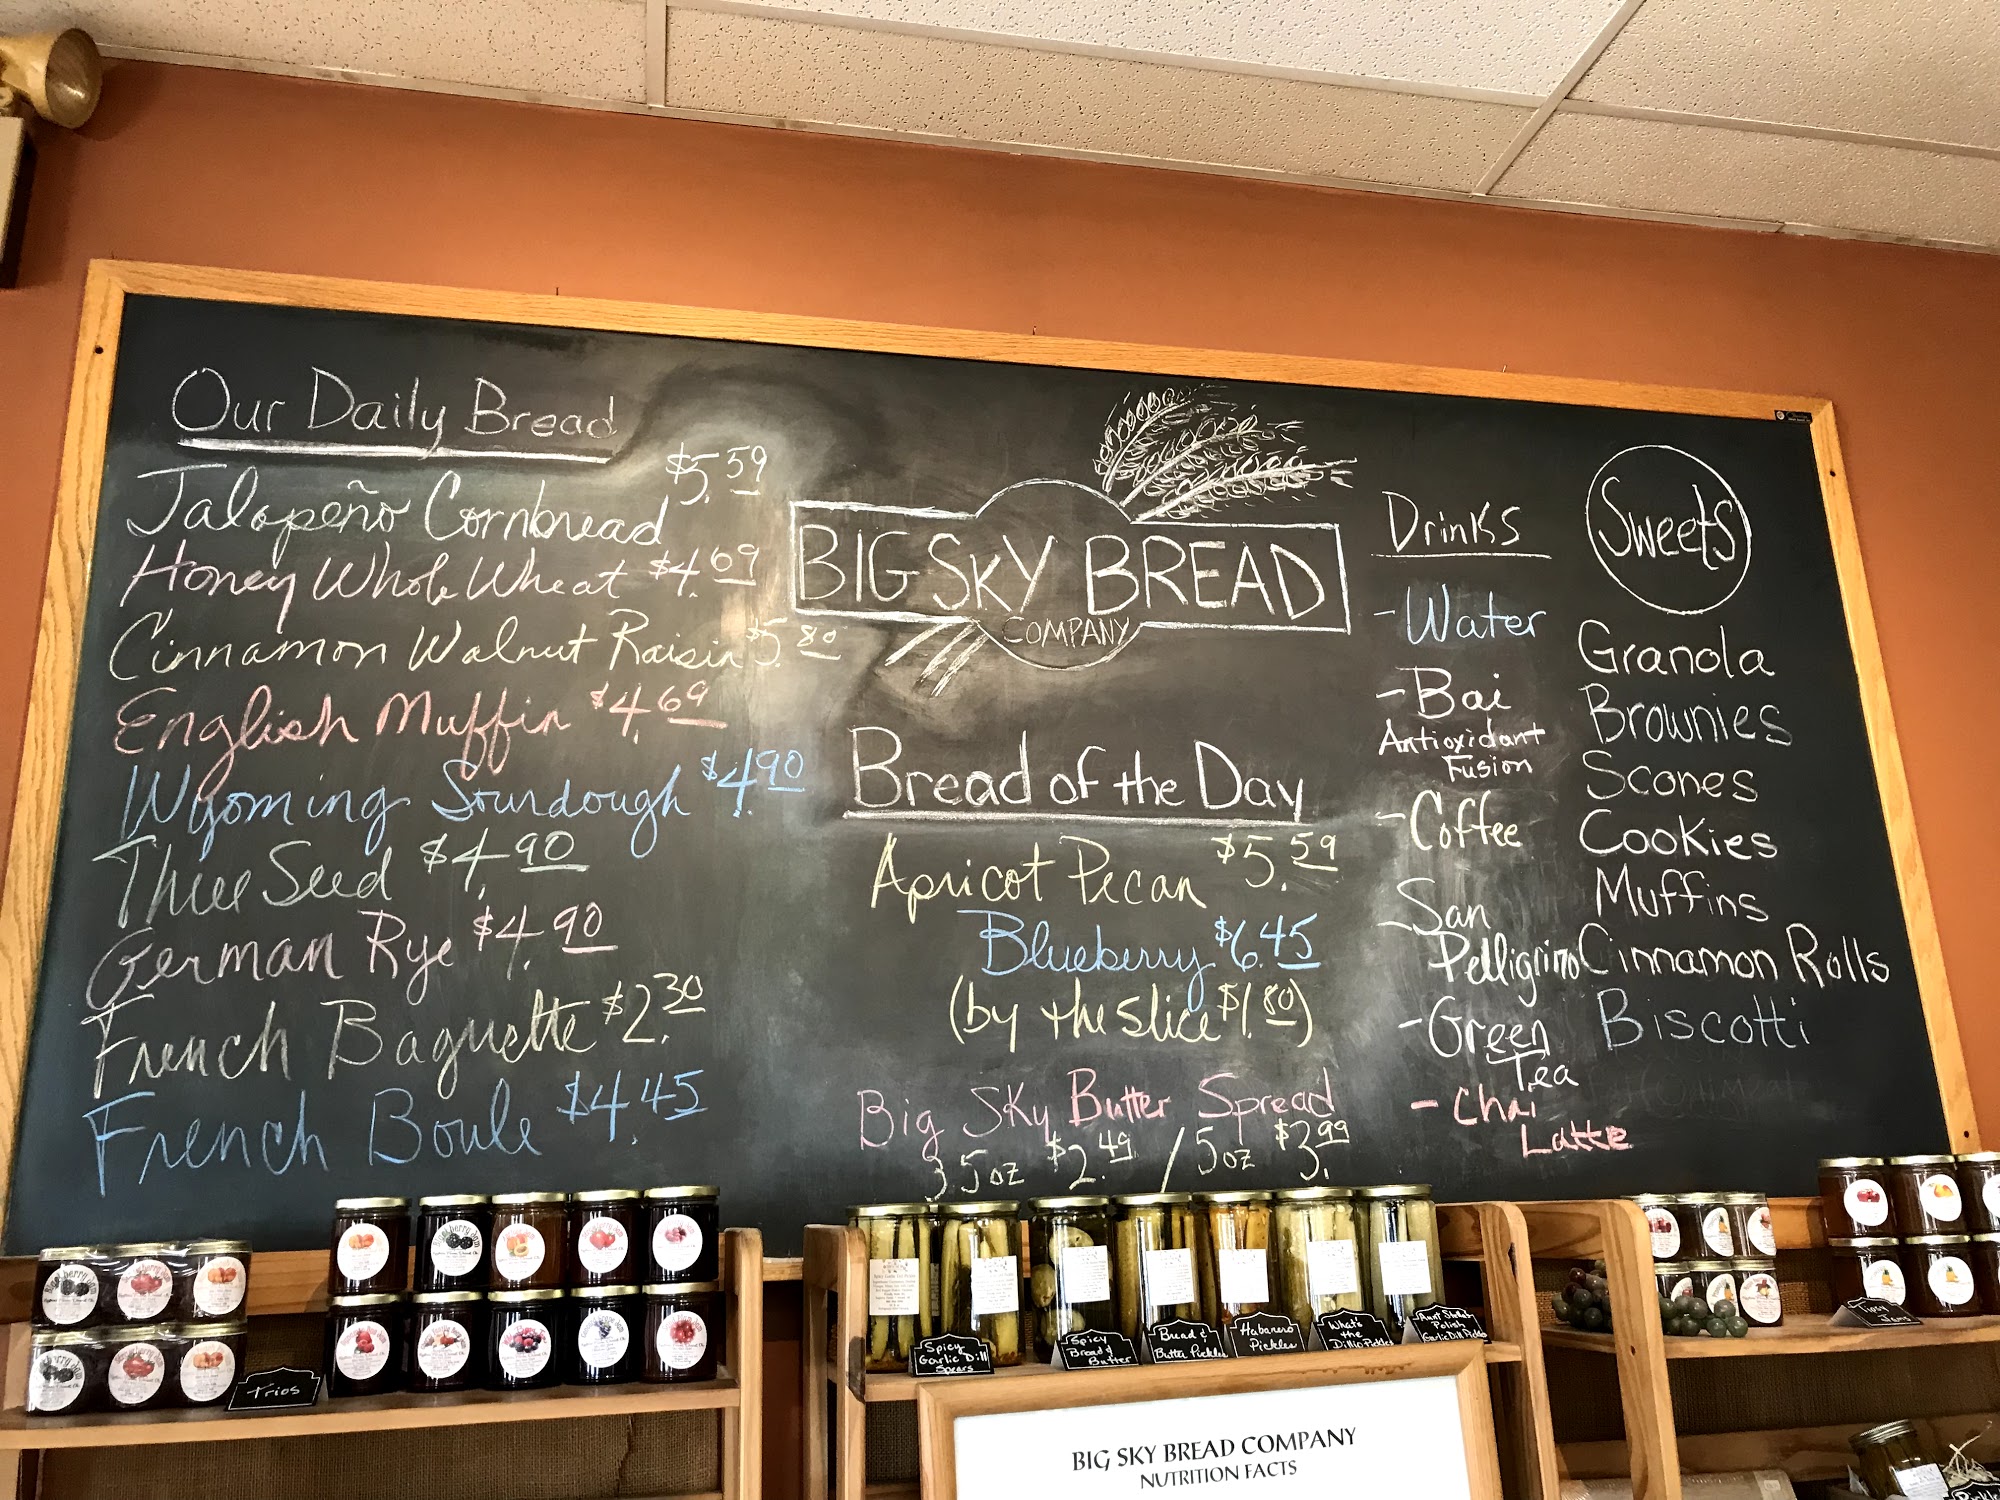 Our Daily Bread
Jalapeño Cornbread $5.59
Honey Whole Wheat $4.69
Cinnamon Walnut Raisin $5.80
English Muffin $4.69
Wyoming Sourdough $4.90
Three Seed $4.90
German Rye $4.90
French Baguette $2.30
French Boule $4.45
BIG SKY BREAD
COMPANY
Bread of the Day
Apricot Pecan $5.59
Blueberry $6.45
(by the slice $1.80)
Big Sky Butter Spread
3.5oz $2.49 / 5oz $3.99
Drinks
- Water
- Bai
Antioxidant
Fusion
- Coffee
- San
Pelligrino
- Green
Tea
- Chai
Latte
Sweets
Granola
Brownies
Scones
Cookies
Muffins
Cinnamon Rolls
Biscotti
Trios
Spicy
Garlic Dill
Spears
Spicy
Bread &
Butter
Bread &
Butter Pickles
Habanero
Pickles
What's
the
Dill Pickles
Polish
Garlic Dill Pickles
Tipsy
Jams
BIG SKY BREAD COMPANY
NUTRITION FACTS